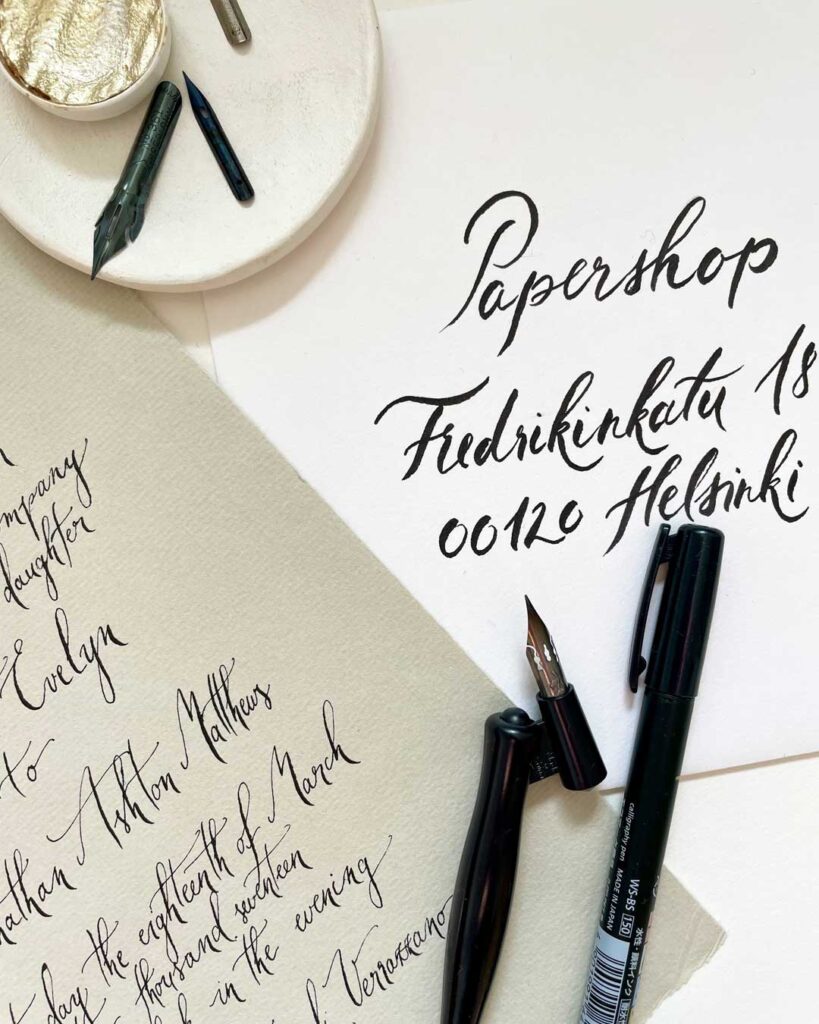 Papershop
Fredrikinkatu 18
00120 Helsinki
daughter
Evelyn
to
Ashton Matthews
the eighteenth of March
thousand seventeen
in the evening
Verrazzano
calligraphy pen MADE IN JAPAN
WS-BS 150
水性・顔料インク